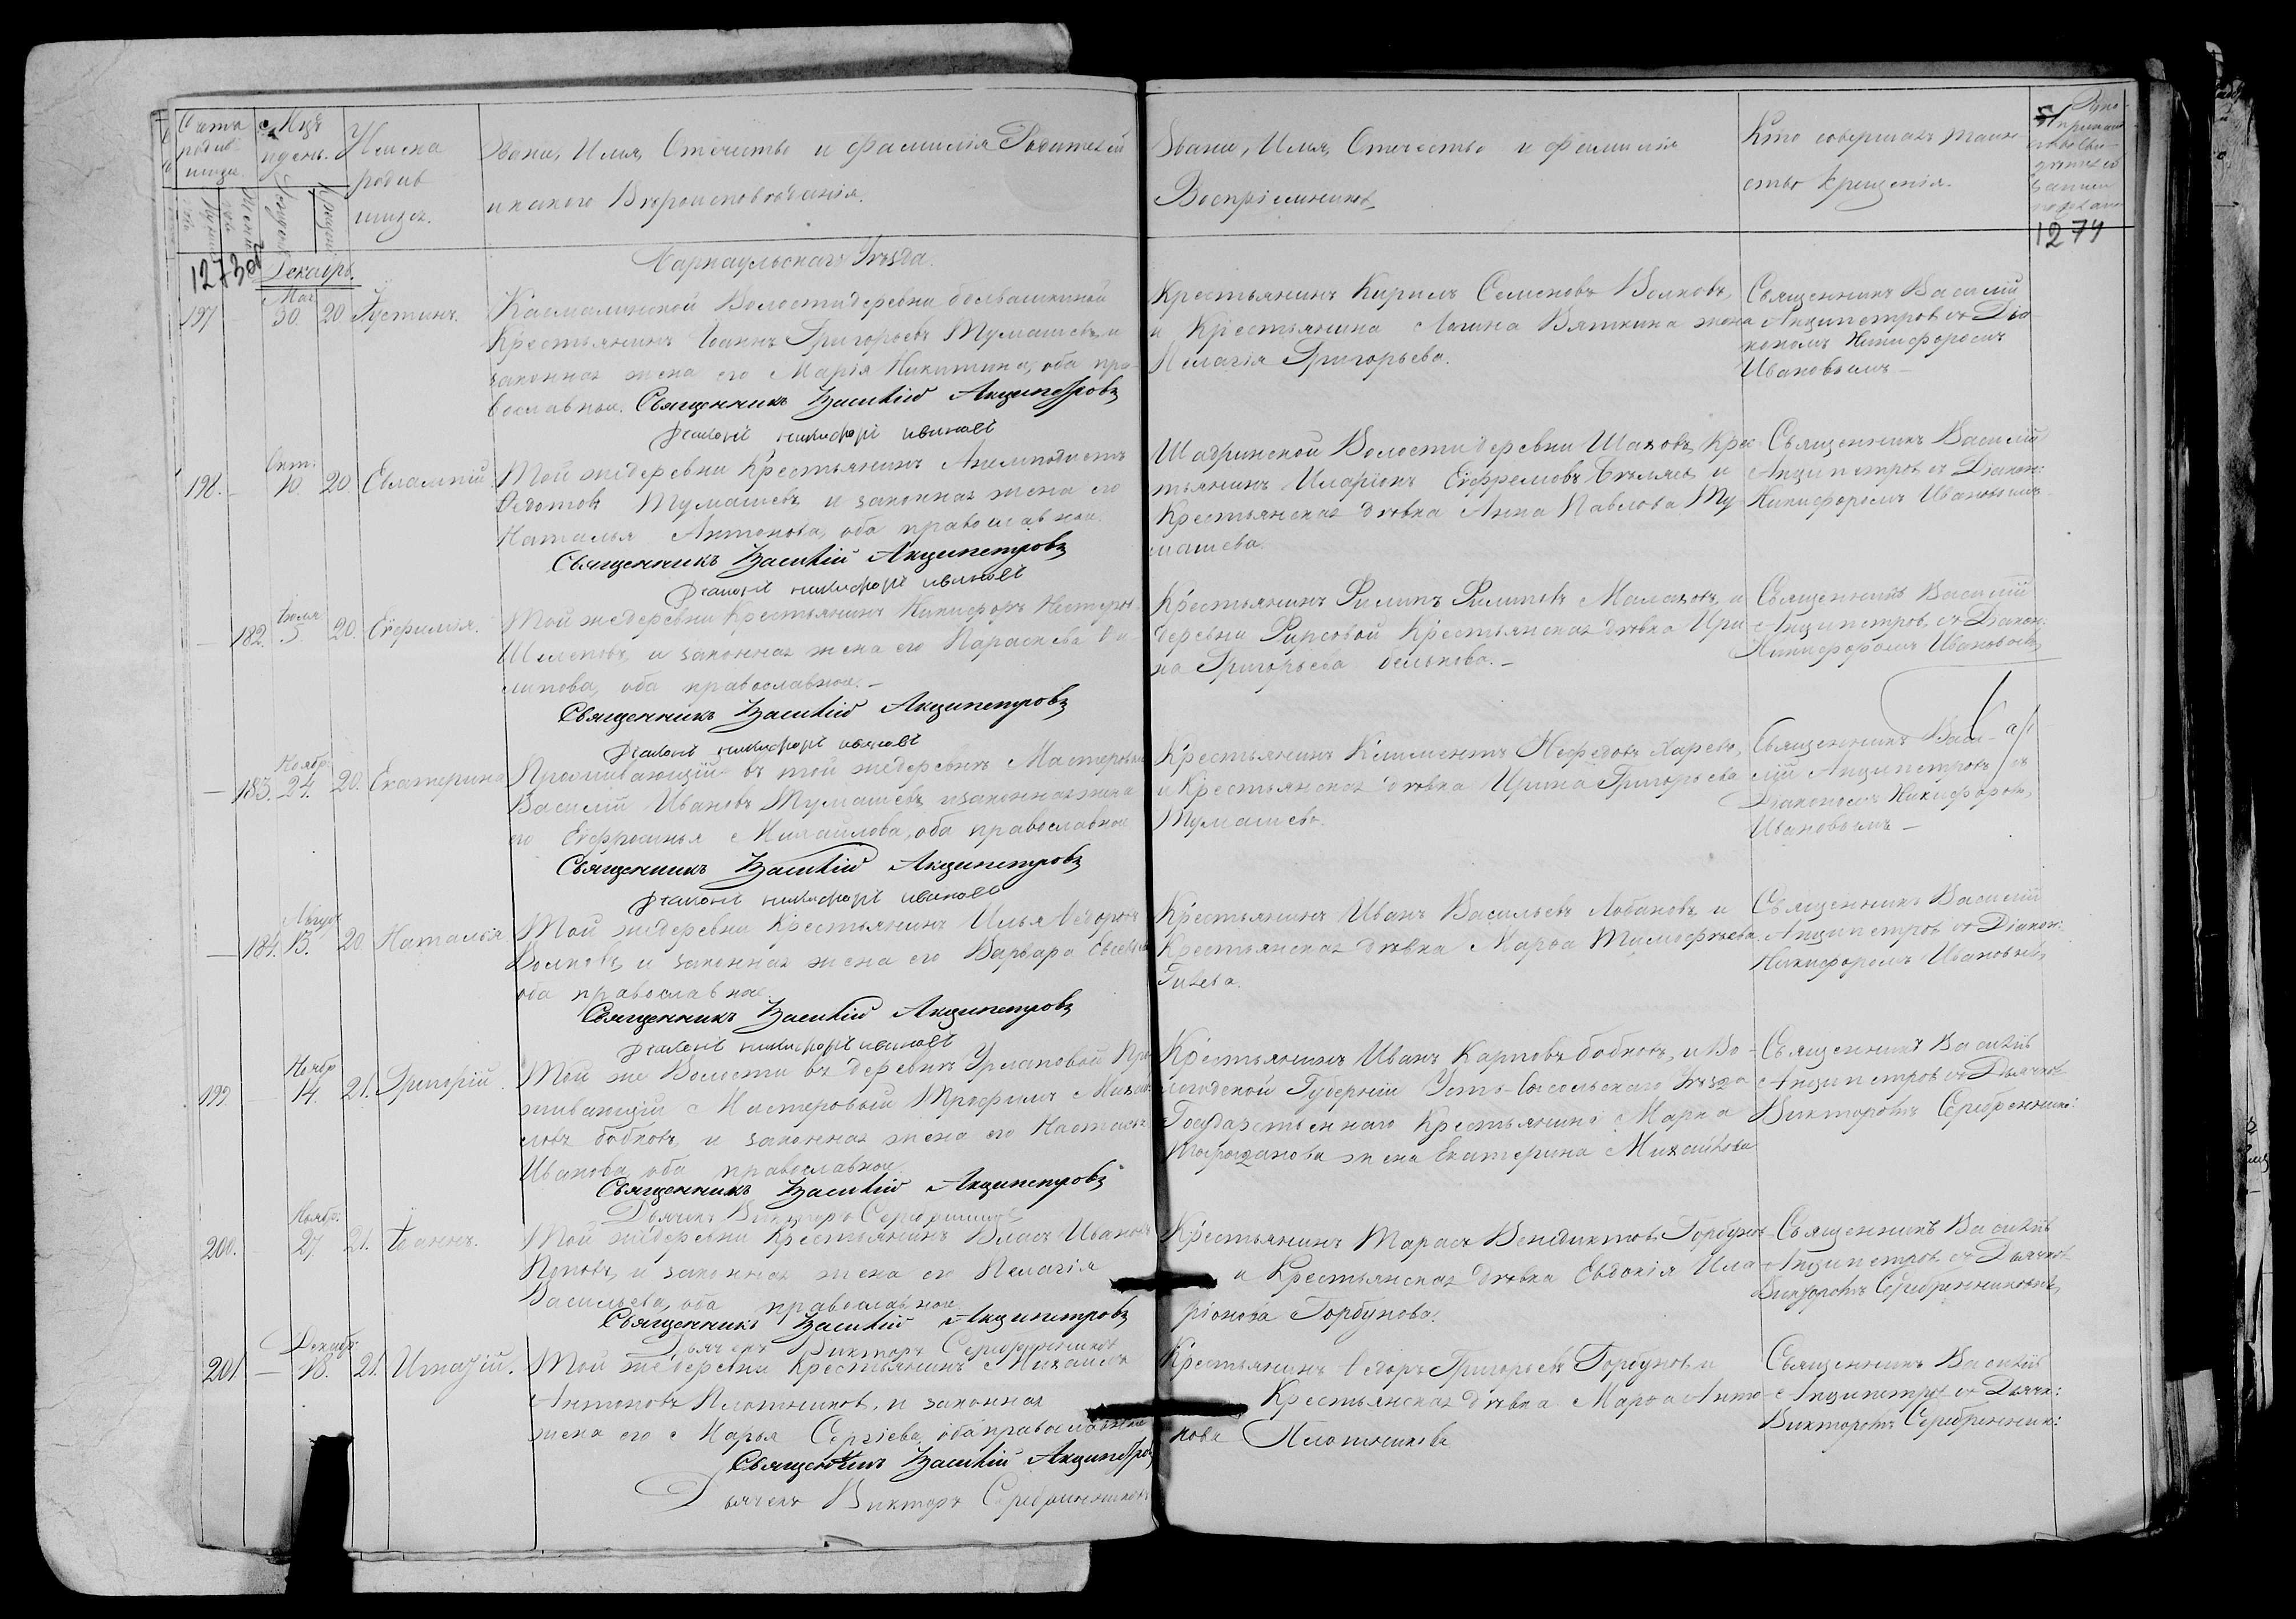 Мѣсяцъ
и день.
Имена
родив
шихся.
Званіе, Имя, Отчество и фамилія Родителей
и какого Вѣроисповѣданія.
Званіе, Имя, Отчество и фамилія
Воспріемниковъ
Кто совершалъ таин-
ство крещенія.
1273об
1274
Декабрь.
Барнаульскаго Уѣзда.
197
30.
20
Іустинъ.
Касмалинской Волости деревни
Крестьянинъ Іоаннъ Григорьевъ Тумашевъ, и
законная жена его Марія Никитина, оба пра-
вославные. Священникъ Василій Акципетровъ
Діаконъ Никифоръ Ивановъ
Крестьянинъ Кирилъ Семеновъ Волковъ,
и Крестьянина Логина Вяткина жена
Пелагія Григорьева.
Священникъ Василій
Акципетровъ съ Діа-
кономъ Никифоромъ
Ивановымъ –
198.
10.
20.
Евлампій.
Той же деревни Крестьянинъ Анемподистъ
Федотовъ Тумашевъ и законная жена его
Наталья Антонова, оба православные.
Священникъ Василій Акципетровъ
Діаконъ Никифоръ Ивановъ
Шадринской Волости деревни Шаховъ Крес-
тьянинъ Иларіонъ Ефремовъ и
Крестьянская дѣвка Анна Павлова Ту-
машева.
Священникъ Василій
Акципетровъ съ Діакон:
Никифоромъ Ивановымъ
182.
Іюля
5
20.
Евфимія.
Той же деревни Крестьянинъ Никифоръ Нестеровъ
и законная жена его Параскева Фи-
липова, оба православные. –
Священникъ Василій Акципетровъ
Діаконъ Никифоръ Ивановъ
Крестьянинъ Филипъ Филиповъ Малаховъ, и
деревни Крестьянская дѣвка Ири-
на Григорьева Белькова. –
Священникъ Василій
Акципетровъ съ Діакон:
Никифоромъ Ивановымъ
183.
Ноябр:
24.
20.
Екатерина
Проживающій въ той же деревнѣ Мастеровый
Василій Ивановъ Тумашевъ, и законная жена
его Евфросинья Михайлова, оба православные
Священникъ Василій Акципетровъ
Діаконъ Никифоръ Ивановъ
Крестьянинъ Климентъ Нефедовъ Харевъ,
и Крестьянская дѣвка Ирина Григорьева
Тумашева.
Священникъ Васи-
лій Акципетровъ съ
Діакономъ Никифоромъ
Ивановымъ –
184.
Август
13.
20
Наталья
Той же деревни Крестьянинъ Илья Федоровъ
Волковъ, и законная жена его Варвара
оба православные.
Священникъ Василій Акципетровъ
Діаконъ Никифоръ Ивановъ
Крестьянинъ Иванъ Васильевъ Лобановъ, и
Крестьянская дѣвка Марѳа Тимофѣева
Гилева.
Священникъ Василій
Акципетровъ съ Діакон:
Никифоромъ Ивановым
199.
Ноябр
14.
21.
Григорій.
Той же Волости въ деревнѣ Урлаповой Про-
живающій Мастеровый Трофимъ Михай-
ловъ Бобковъ, и законная жена его Настасья
Иванова, оба православные.
Священникъ Василій Акципетровъ
Дьячекъ Викторъ Серебренниковъ
Крестьянинъ Иванъ Карповъ Бобковъ, и Во-
логодской Губерніи Усть-Сысольскаго Уѣзда
Государственнаго Крестьянина Марка
жена Екатерина Михайлова
Священникъ Василій
Акципетровъ съ Дьячков
Викторомъ Серебренник:
200.
Ноябр:
27.
21.
Іоаннъ.
Той же деревни Крестьянинъ Власъ Ивановъ
Поповъ, и законная жена его Пелагія
Васильева, оба православные
Священникъ Василій Акципетровъ
Дьячекъ Викторъ Серебренниковъ
Крестьянинъ Тарасъ Венидиктовъ Горбунов
и Крестьянская дѣвка Евдокія Ила-
ріонова Горбунова.
Священникъ Василій
Акципетровъ съ Дьячков
Викторомъ Серебренниковымъ
201.
Декабр
18.
21.
Игнатій.
Той же деревни Крестьянинъ Михаилъ
Антоновъ Плотников, и законная
жена его Марья Сергіева, оба православные
Священникъ Василій Акципетров
Дьячекъ Викторъ Серебренниковъ
Крестьянинъ Ѳедоръ Григорьевъ Горбунов, и
Крестьянская дѣвка Марѳа Анто-
нова Плотникова
Священникъ Василій
Акципетров съ Дьячк:
Викторомъ Серебренник: